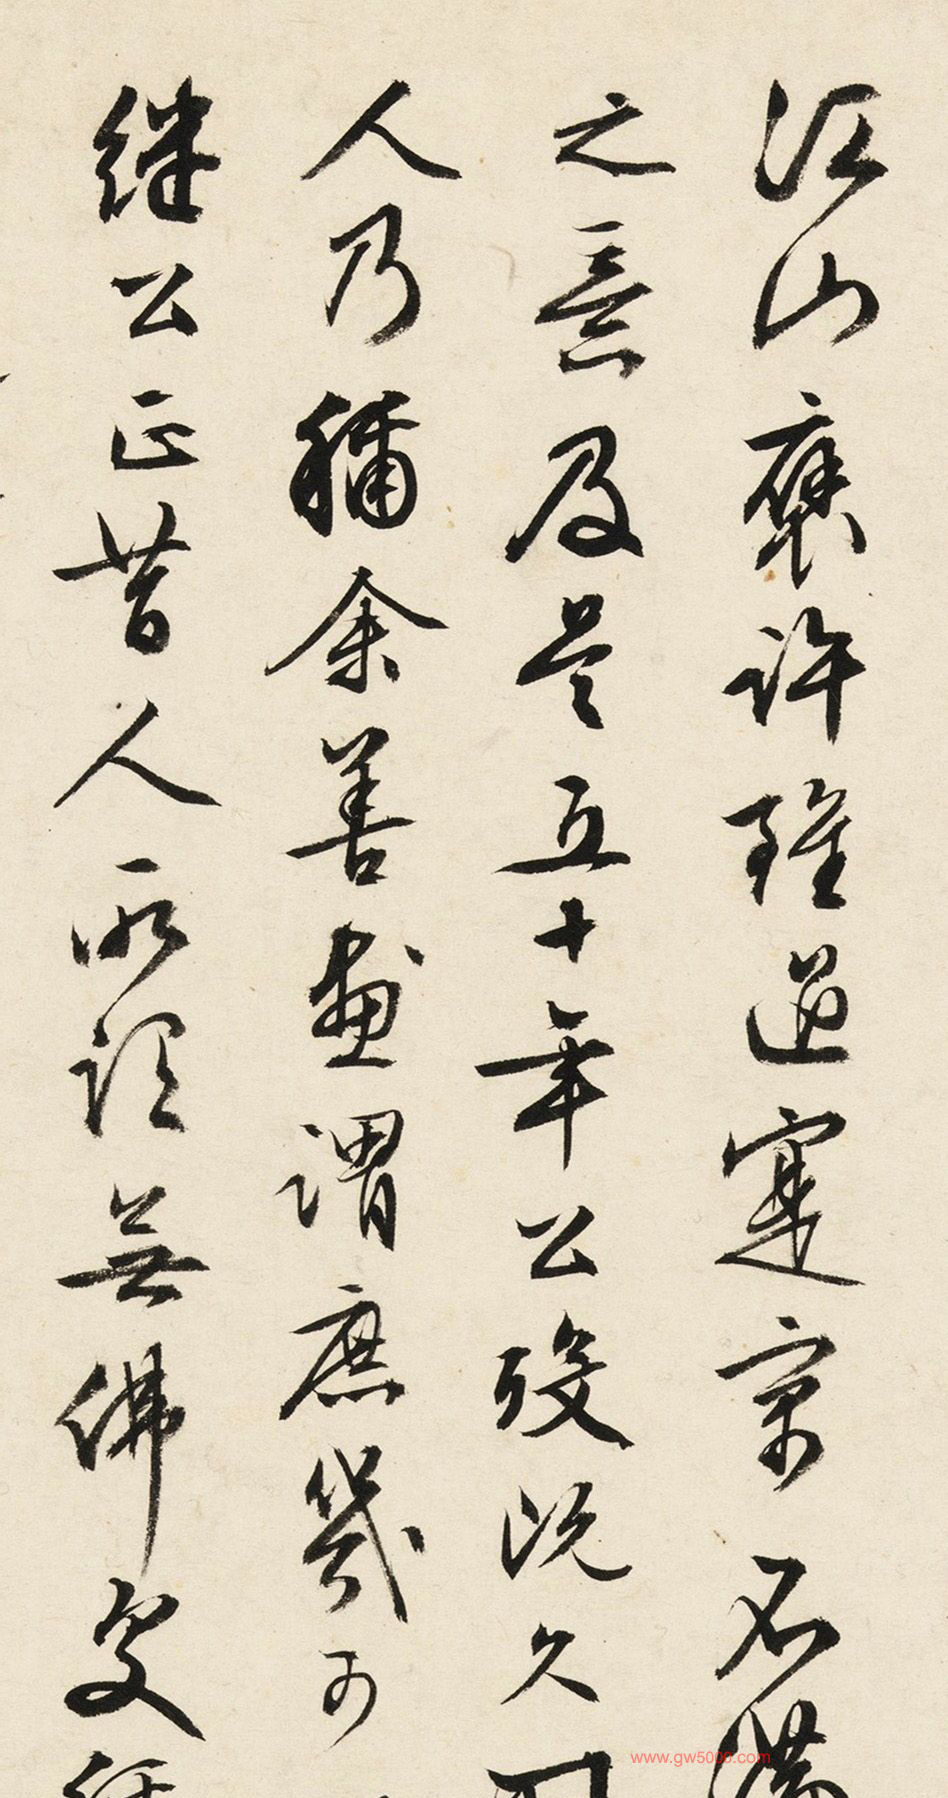 江山褒許雖過寔寓不滿
之意及是五十年公歿既久
人乃稱余善畫謂庶幾可
繼公正昔人所謂無佛處稱
www.gw5000.com